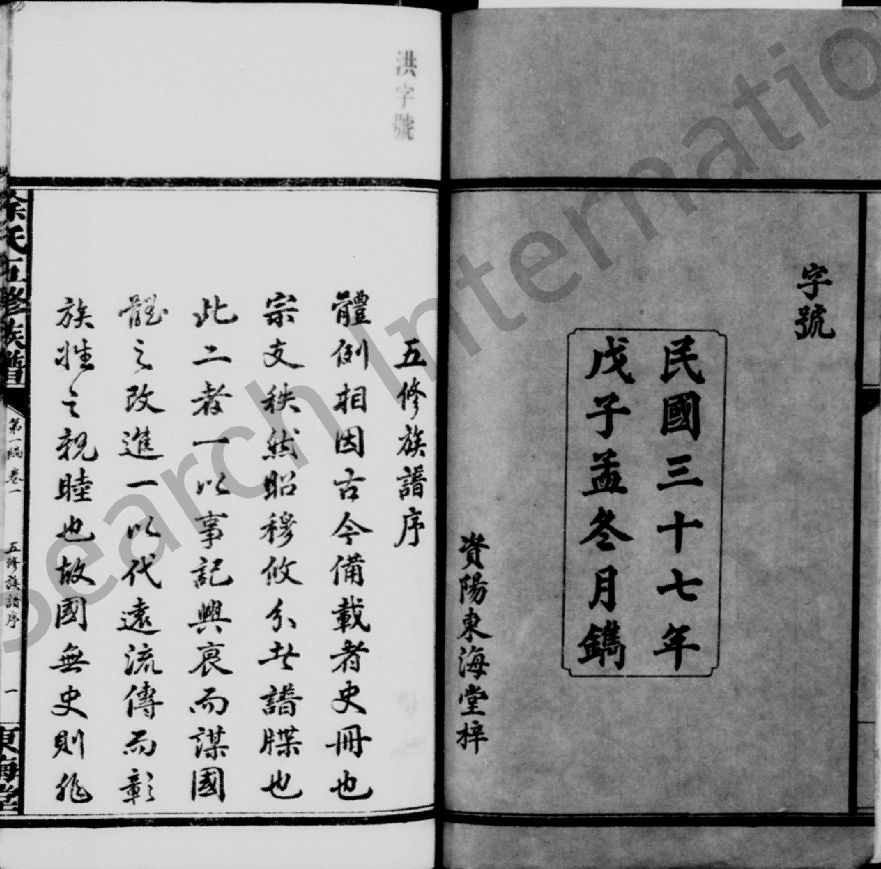 字號
民國三十七年
戊子孟冬月鐫
資陽東海堂梓
洪字號
五修族譜序
體例相因古今備載者史冊也
宗支秩然昭穆攸分者譜牒也
此二者一以事記興衰而謀國
體之改進一以代遠流傳而彰
族姓之親睦也故國無史則非
徐氏五修族譜
第一編卷一
五修族譜序
一
東海堂
Search Internatio